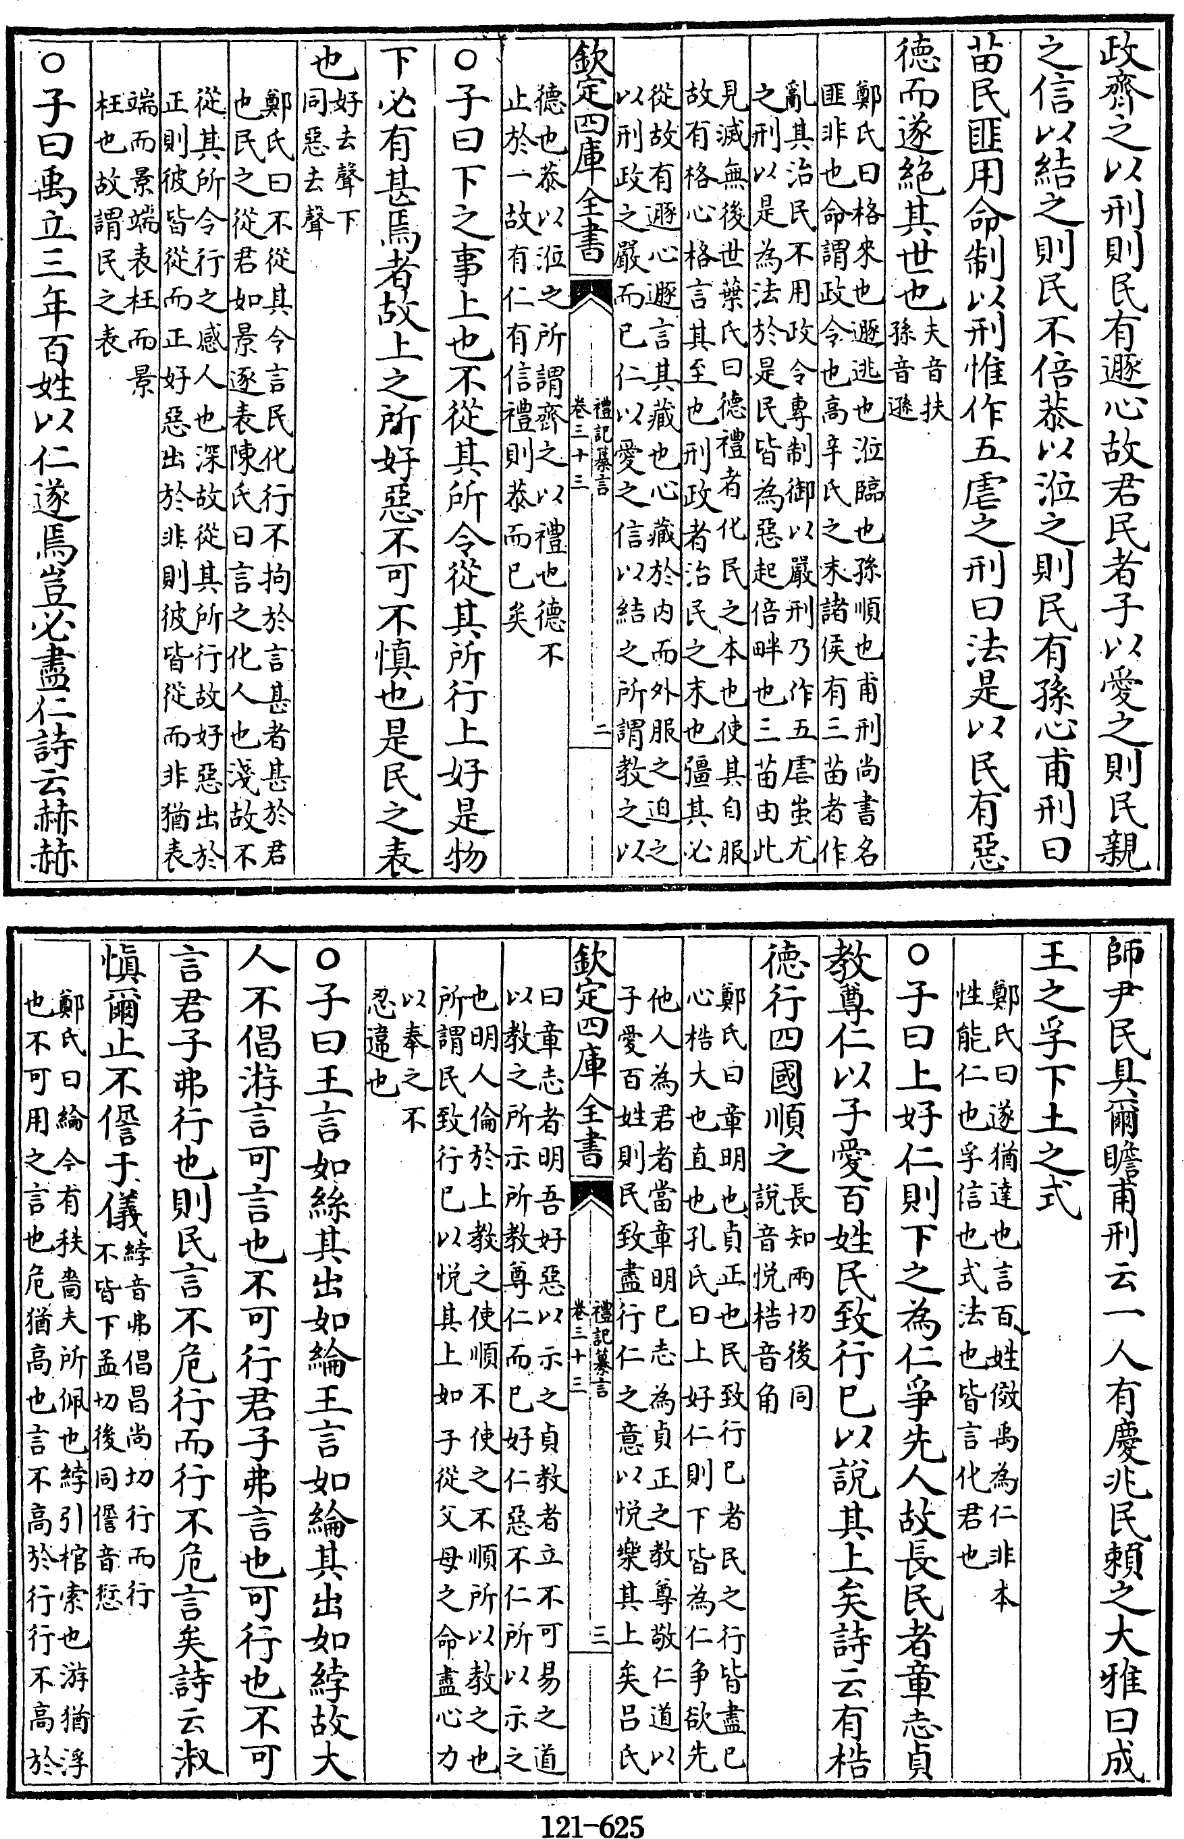 政齊之以刑則民有遯心故君民者子以愛之則民親
之信以結之則民不倍恭以涖之則民有孫心甫刑曰
苗民匪用命制以刑惟作五虐之刑曰法是以民有惡
德而遂絕其世也
夫音扶
孫音遜
鄭氏曰格來也遯逃也涖臨也孫順也甫刑尚書名
匪非也命謂政令也高辛氏之末諸侯有三苗者作
亂其治民不用政令專制御以嚴刑乃作五虐蚩尤
之刑以是為法於是民皆為惡起倍畔也三苗由此
見滅無後世葉氏曰德禮者化民之本也使其自服
故有格心格言其至也刑政者治民之末也彊其必
從故有遯心遯言其藏也心藏於内而外服之迫之
以刑政之嚴而已仁以愛之信以結之所謂教之以
欽定四庫全書
禮記纂言
卷三十三
二
德也恭以涖之所謂齊之以禮也德不
止於一故有仁有信禮則恭而已矣
○子曰下之事上也不從其所令從其所行上好是物
下必有甚焉者故上之所好惡不可不慎也是民之表
也
好去聲下
同惡去聲
鄭氏曰不從其令言民化行不拘於言甚者甚於君
也民之從君如景逐表陳氏曰言之化人也淺故不
從其所令行之感人也深故從其所行故好惡出於
正則彼皆從而正好惡出於非則彼皆從而非猶表
端而景端表枉而景
枉也故謂民之表
○子曰禹立三年百姓以仁遂焉豈必盡仁詩云赫赫
師尹民具爾瞻甫刑云一人有慶兆民賴之大雅曰成
王之孚下土之式
鄭氏曰遂猶達也言百姓傚禹為仁非本
性能仁也孚信也式法也皆言化君也
○子曰上好仁則下之為仁爭先人故長民者章志貞
教尊仁以子愛百姓民致行已以說其上矣詩云有梏
德行四國順之
長知兩切後同
說音悅梏音角
鄭氏曰章明也貞正也民致行已者民之行皆盡已
心梏大也直也孔氏曰上好仁則下皆為仁爭欲先
他人為君者當章明已志為貞正之教尊敬仁道以
子愛百姓則民致盡行仁之意以悅樂其上矣呂氏
欽定四庫全書
禮記纂言
卷三十三
三
曰章志者明吾好惡以示之貞教者立不可易之道
以教之所示所教尊仁而已好仁惡不仁所以示之
也明人倫於上教之使順不使之不順所以教之也
所謂民致行已以悅其上如子從父母之命盡心力
以奉之不
忍違也
○子曰王言如絲其出如綸王言如綸其出如綍故大
人不倡游言可言也不可行君子弗言也可行也不可
言君子弗行也則民言不危行而行不危言矣詩云淑
慎爾止不僭于儀
綍音弗倡昌尚切行而行
不皆下孟切後同僭音愆
鄭氏曰綸今有秩嗇夫所佩也綍引棺索也游猶浮
也不可用之言也危猶高也言不高於行行不高於
121-625